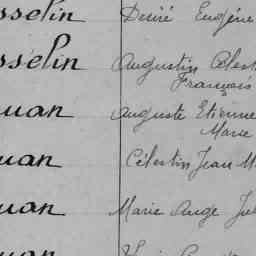 sselin Désiré Eugène
sselin Augustin Célest
François
uan Auguste Etienne
Marie
uan Célestin Jean M
uan Marie Ange Jul
uan